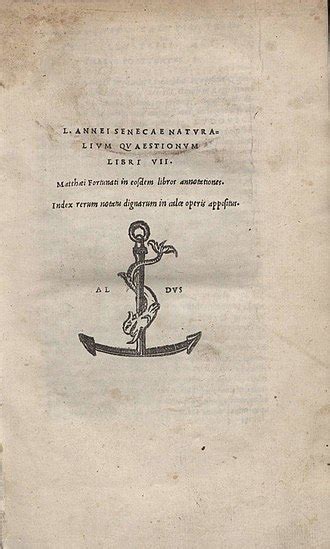 L. ANNEI SENECAE NATVRA=
LIVM QVAESTIONVM
LIBRI VII.
Matthæi Fortunati in eosdem libros annotationes.
Index rerum notatu dignarum in calce operis appositus.
AL DVS